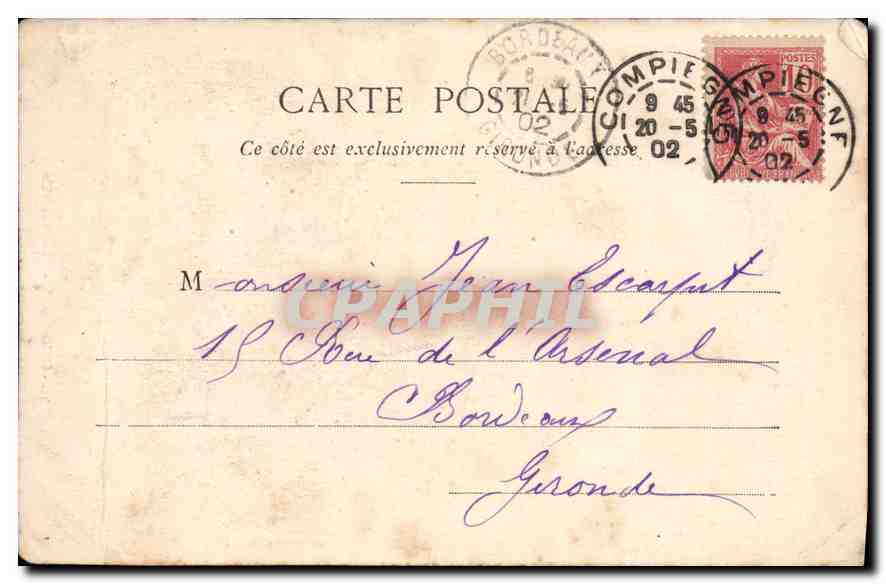 BORDEAUX
02
GIRONDE
COMPIEGNE
9 45
20 -5
02
COMPIEGNE
9 45
20 -5
02
POSTES
10
CARTE POSTALE
Ce côté est exclusivement réservé à l'adresse
Monsieur Jean Escarput
15 Rue de l'Arsenal
Bordeaux
Gironde
CPAPHIL